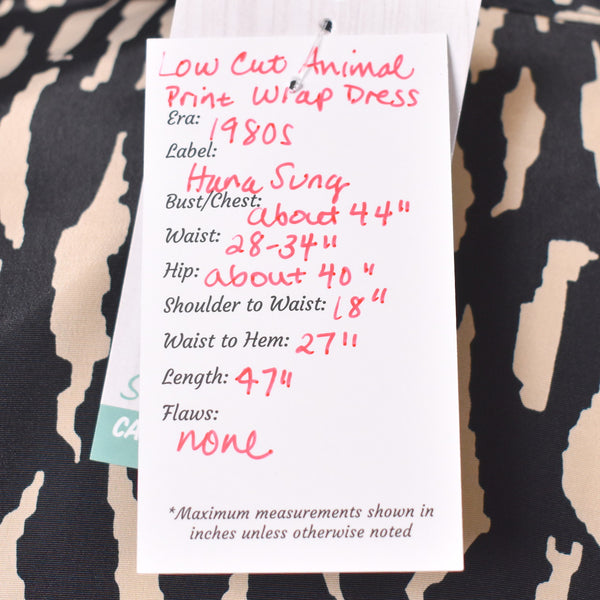 Low Cut Animal
Print Wrap Dress
Era: 1980s
Label:
Hana Sung
Bust/Chest: about 44"
Waist: 28-34"
Hip: about 40"
Shoulder to Waist: 18"
Waist to Hem: 27"
Length: 47"
Flaws:
none
*Maximum measurements shown in
inches unless otherwise noted
S
CA